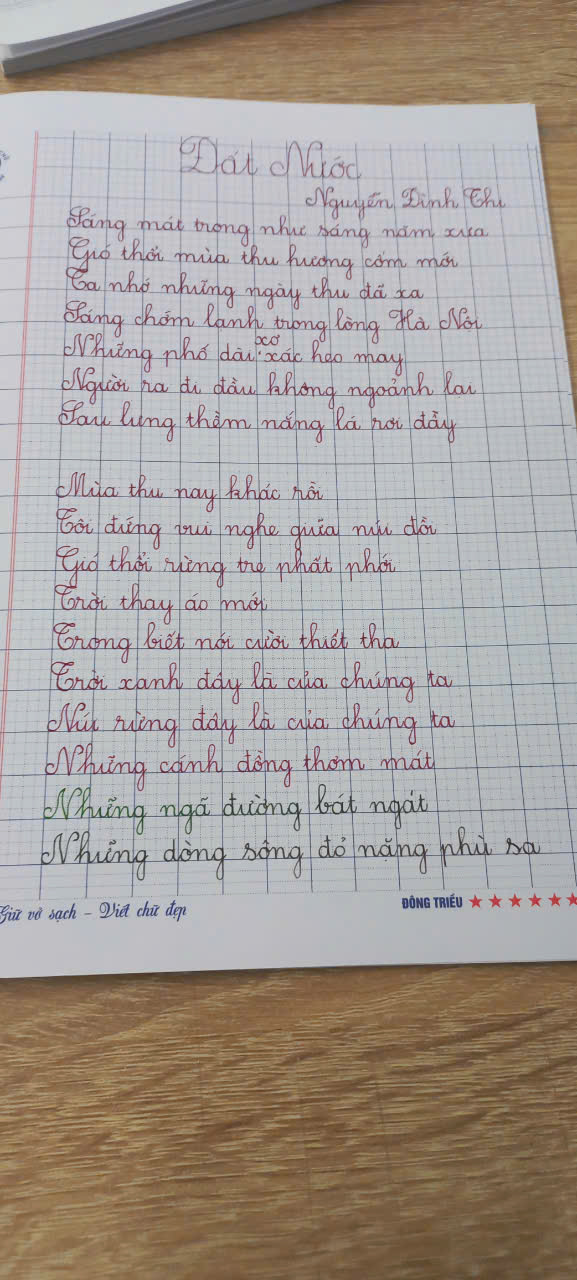 Đất Nước
Nguyễn Đình Thi
Sáng mát trong như sáng năm xưa
Gió thổi mùa thu hương cốm mới
Ta nhớ những ngày thu đã xa
Sáng chớm lạnh trong lòng Hà Nội
Những phố dài xơ xác heo may
Người ra đi đầu không ngoảnh lại
Sau lưng thềm nắng lá rơi đầy
Mùa thu nay khác rồi
Tôi đứng vui nghe giữa núi đồi
Gió thổi rừng tre phất phới
Trời thay áo mới
Trong biết nói cười thiết tha
Trời xanh đây là của chúng ta
Núi rừng đây là của chúng ta
Những cánh đồng thơm mát
Những ngã đường bát ngát
Những dòng sông đỏ nặng phù sa
Giữ vở sạch - Viết chữ đẹp
ĐÔNG TRIỀU